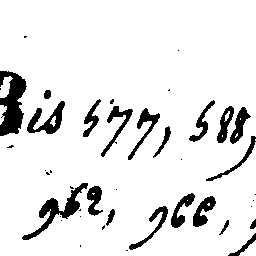 Bis 577, 588,
962, 966,